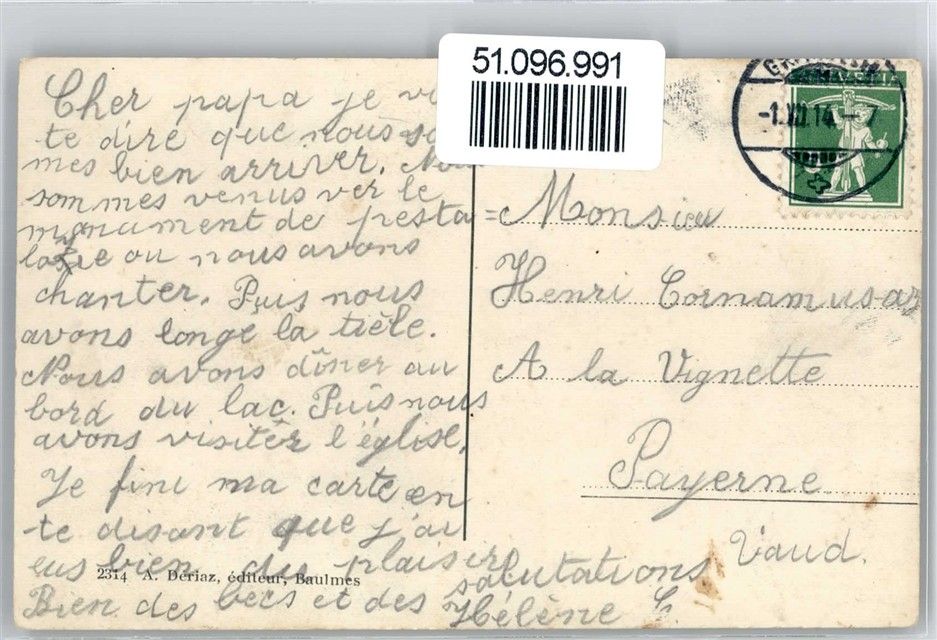 51.096.991
Cher papa je
te dire que nous
mes bien arriver.
sommes venus ver le
monument de pesta=
lozie ou nous avons
chanter. Puis nous
avons longé la tièle.
Nous avons dîner au
bord du lac. Puis nous
avons visitér l'église.
Je fini ma carte en
te disant que j'ai
eus bien du plaisir
Bien des becs et des salutations
Hélène C.
2314 A. Dériaz, éditeur, Baulmes
HELVETIA
-1.XII.14.-7
Monsieur
Henri Cornamusaz
A la Vignette
Payerne
Vaud.